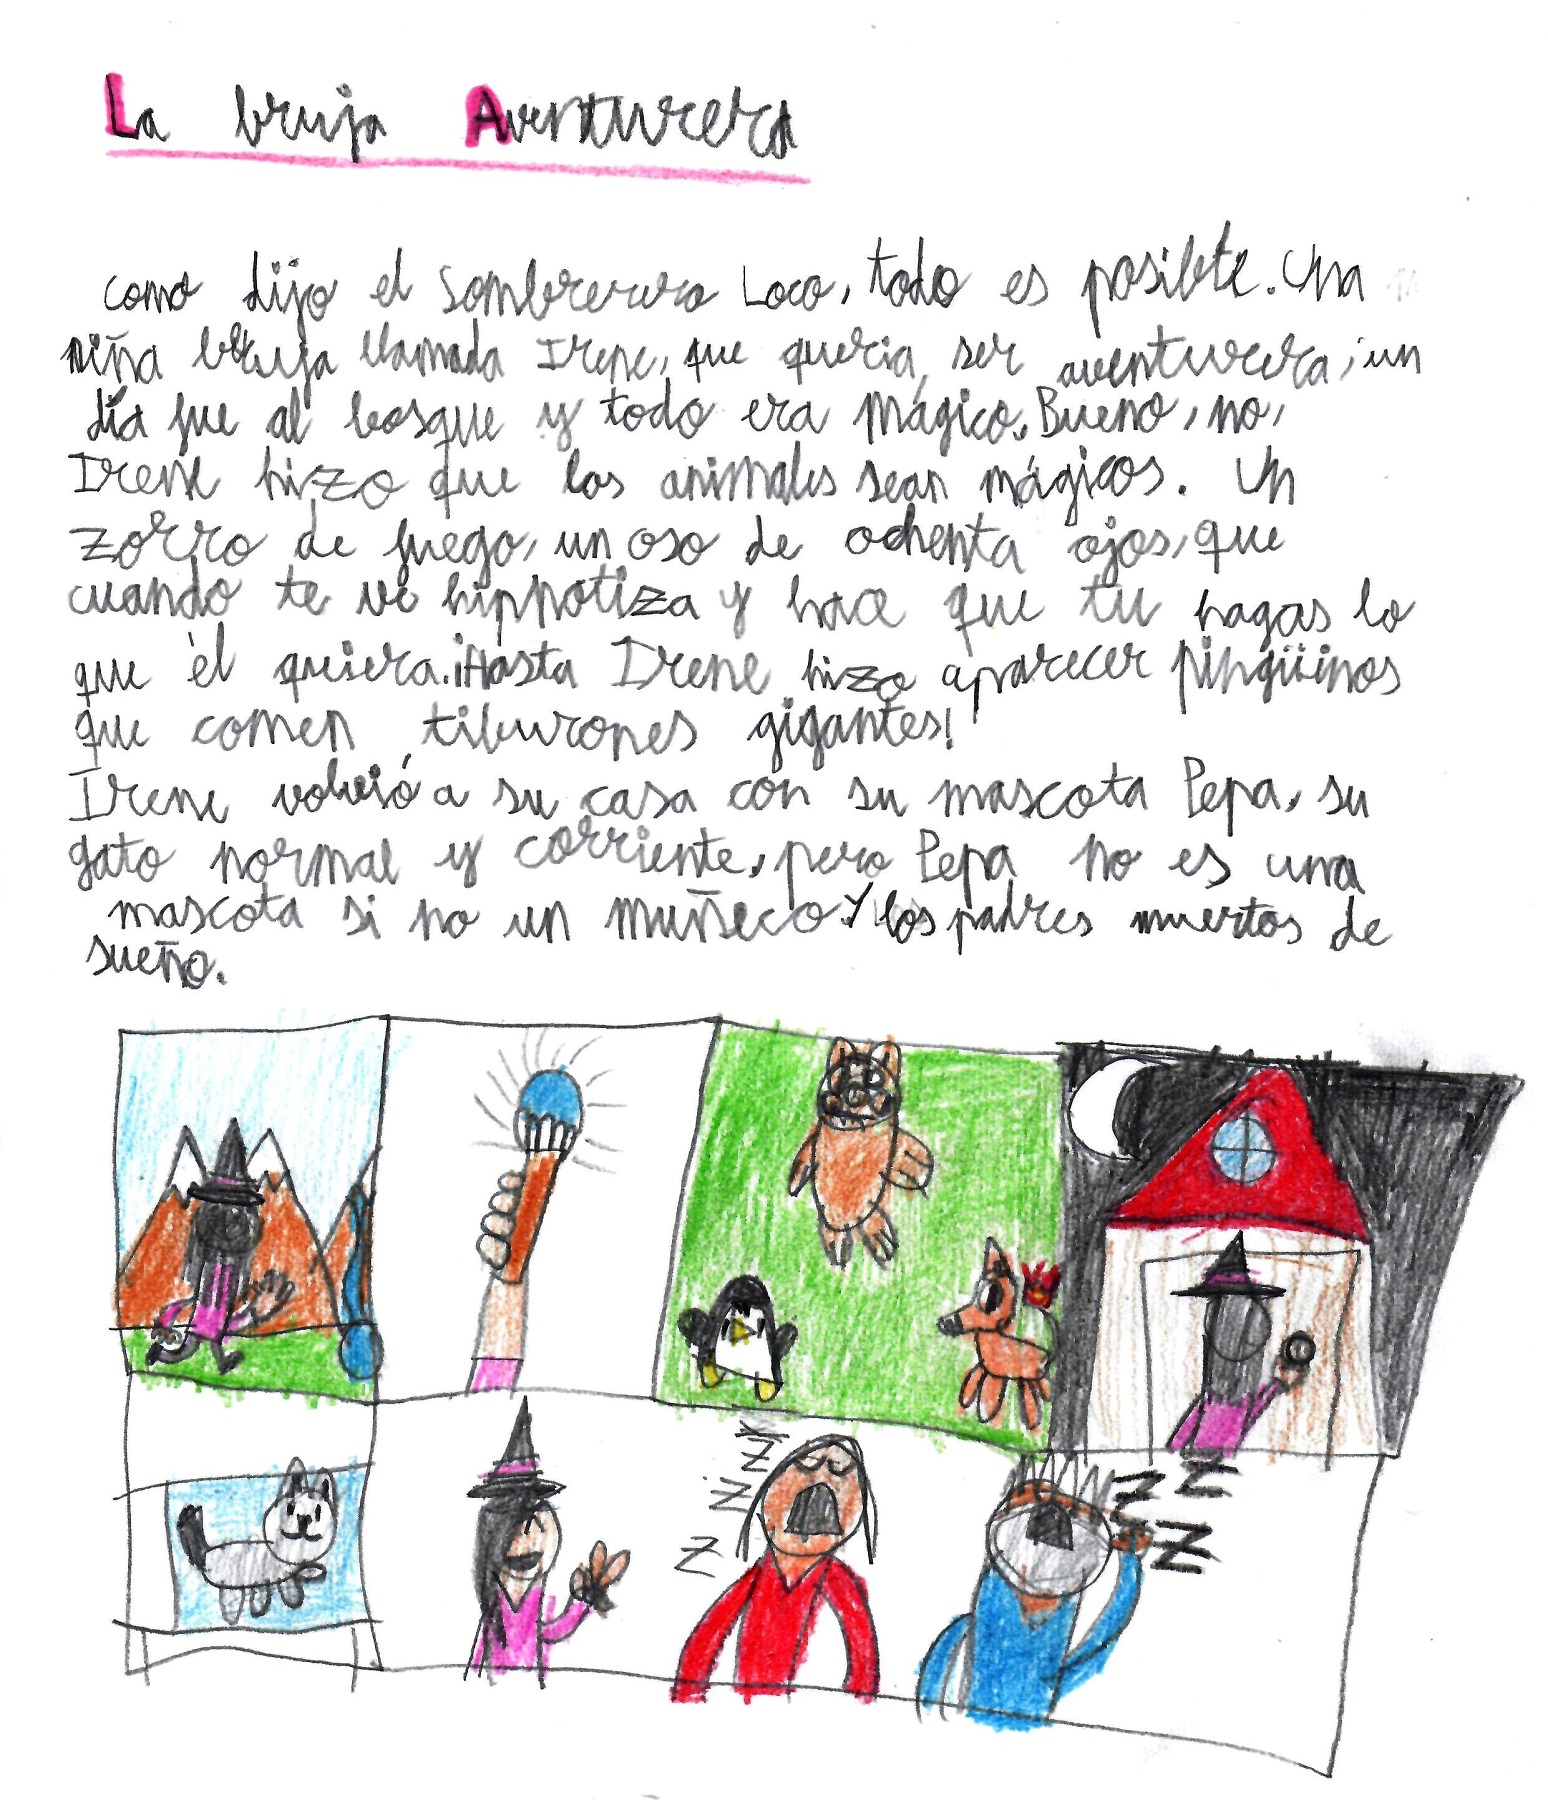 La bruja Aventurera
como dijo el Sombrerero Loco, todo es posible. Una
niña bruja llamada Irene, que queria ser aventurera, un
día fue al bosque y todo era Mágico. Bueno, no,
Irene hizo que los animales sean mágicos. Un
zorro de fuego, un oso de ochenta ojos, que
cuando te ve hipnotiza y hace que tu hagas lo
que él quiera. ¡Hasta Irene hizo aparecer pingüinos
que comen tiburones gigantes!
Irene volvió a su casa con su mascota Pepa, su
gato normal y corriente, pero Pepa no es una
mascota si no un muñeco. Y los padres muertos de
sueño.
Z Z Z Z
Z Z Z Z